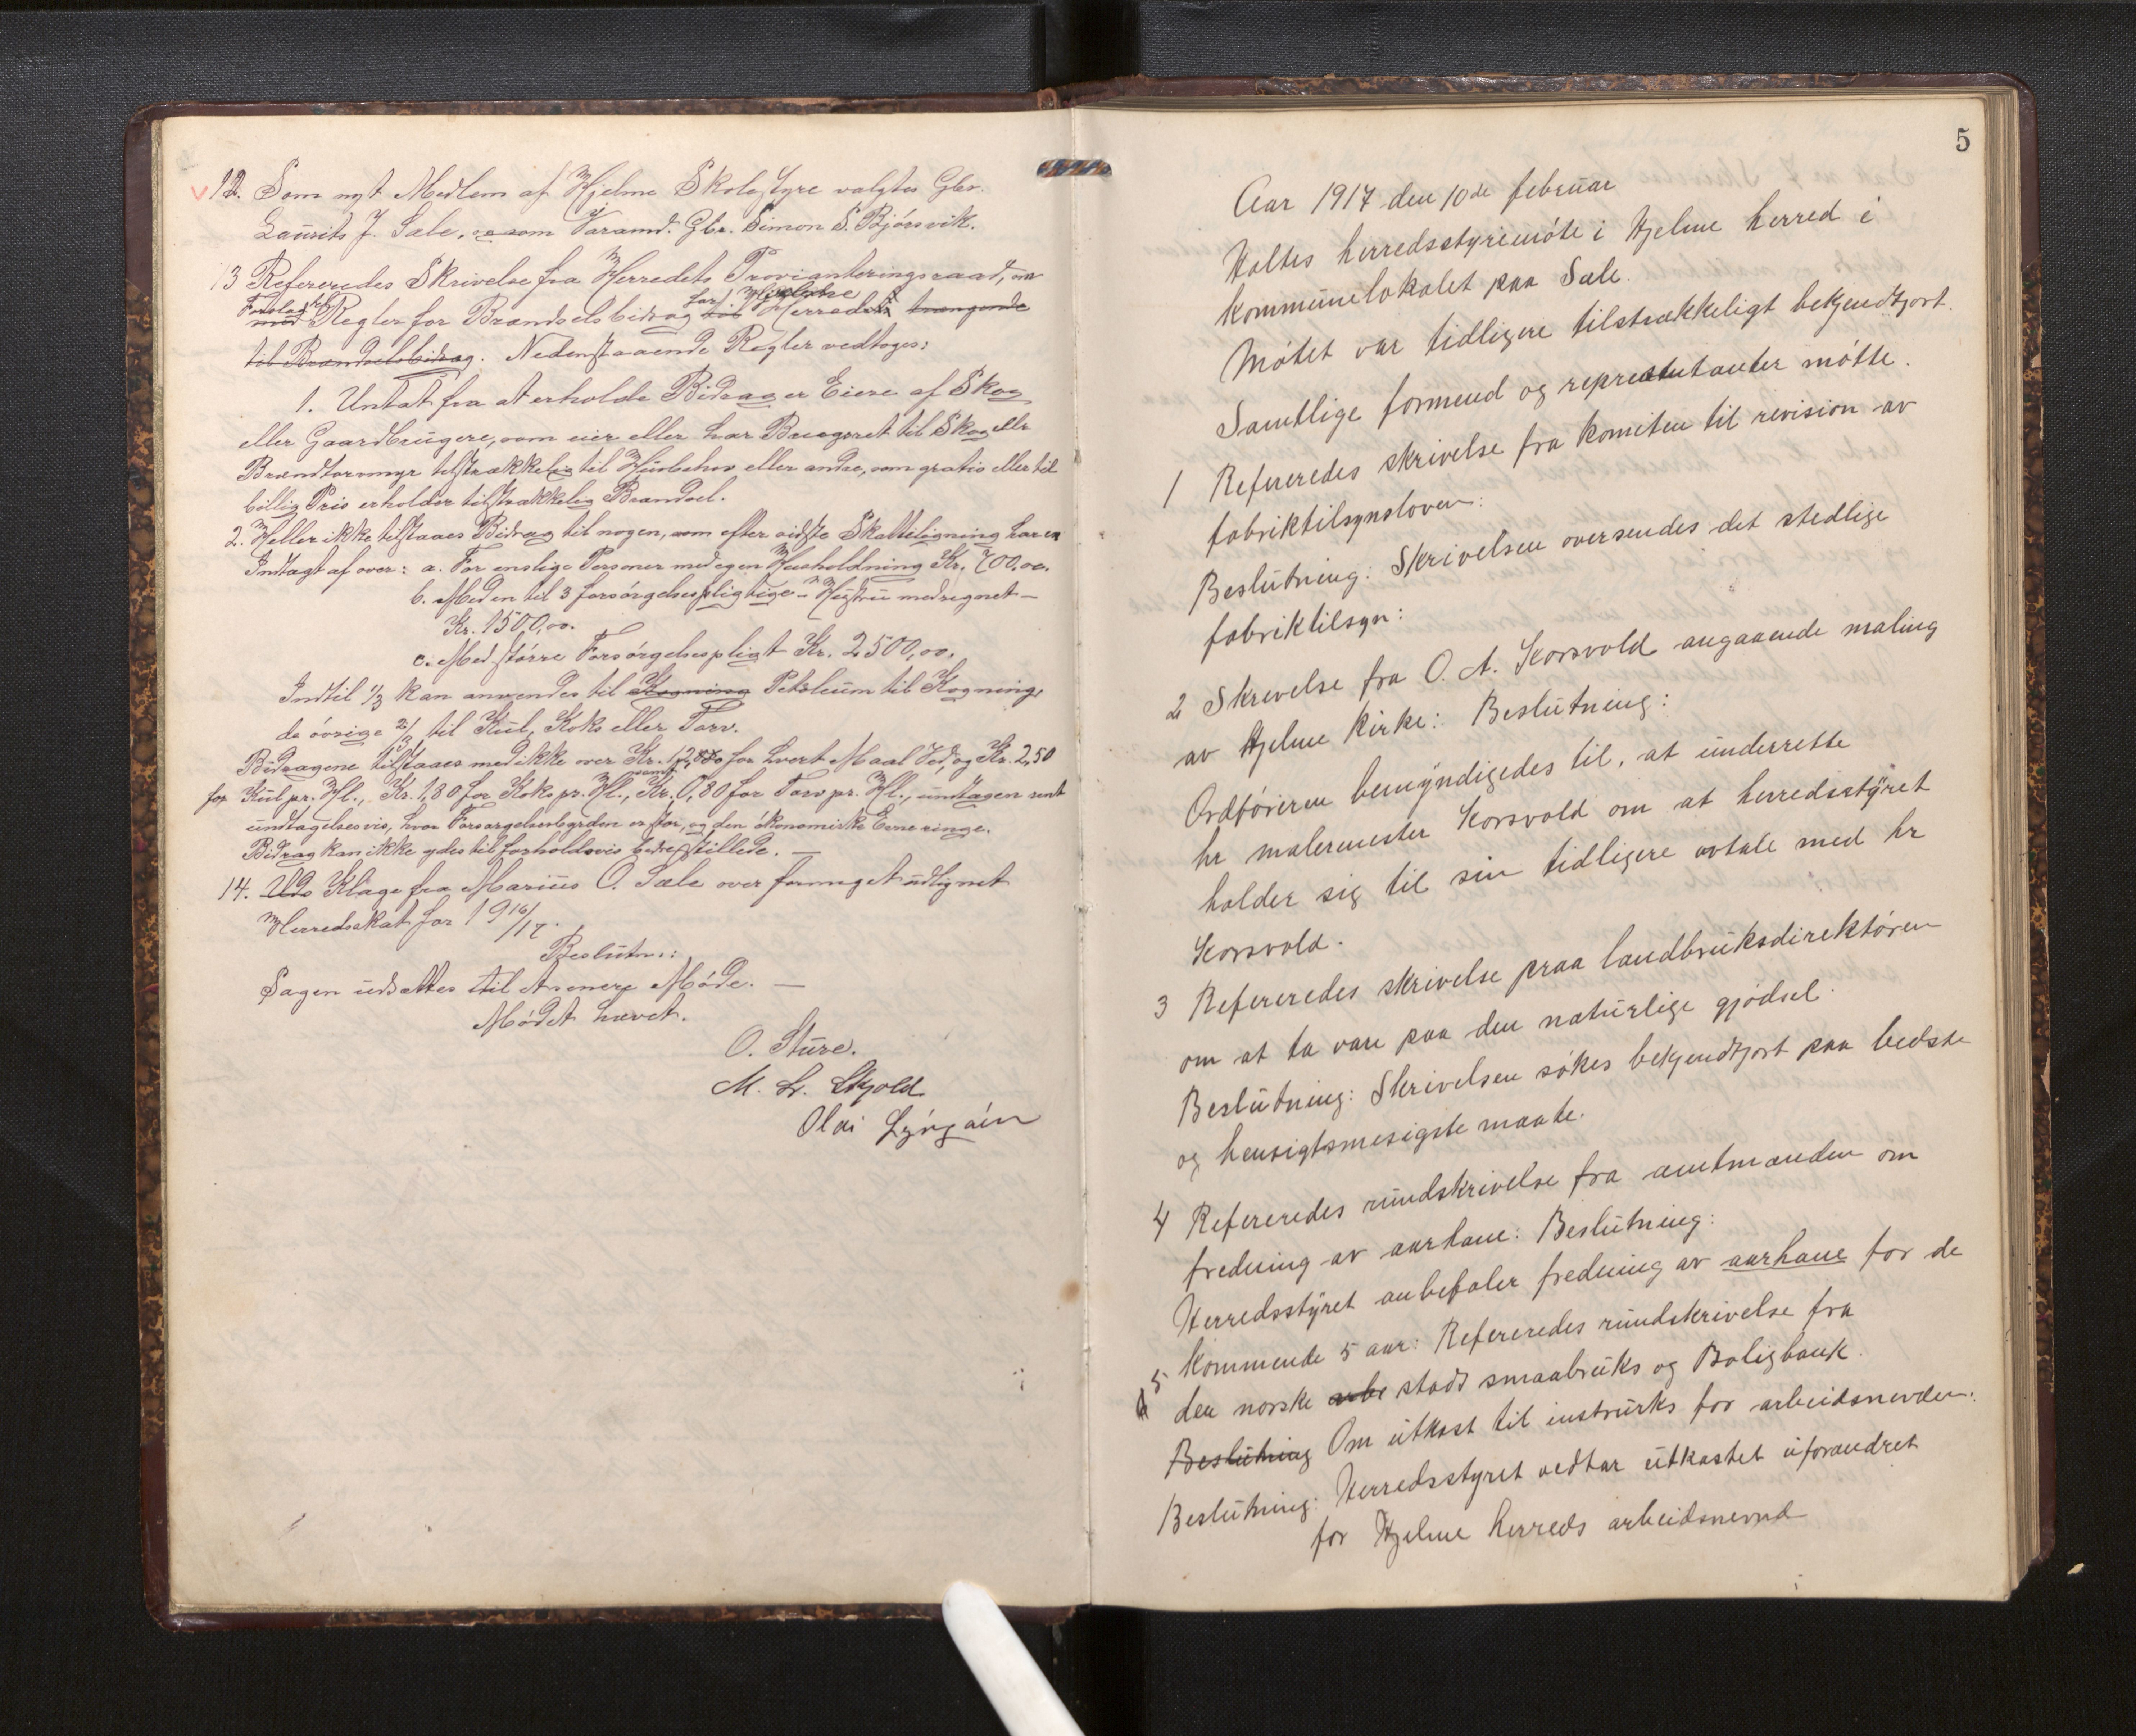 12. Som nyt Medlem af Hjelme Skolestyre valgtes Gbr.
Laurits J. Sæle, og som Varamd. Gbr. Simon S. Bjørsvik.
13 Refereredes Skrivelse fra Herredets Provianteringsraad, om
Forslag til
med Regler for Brændselsbidrag for Herredets trængende
til Brændselsbidrag. Nedenstaaende Regler vedtoges:
1. Untat fra at erholde Bidrag er Eiere af Skog
eller Gaardbrugere, som eier eller har Bruksret til Skog eller
Brændtorvmyr tilstrækkelig til Husbehov eller andre, som gratis eller til
billig Pris erholder tilstrækkelig Brændsel.
2. Heller ikke tilstaaes Bidrag til nogen, som efter sidste Skatteligning har en
Indtægt af over: a. For enslige Personer med egen Husholdning Kr. 700,00.
b. Med en til 3 forsørgelsespligtige - Hustru medregnet -
Kr. 1500,00.
c. Med større Forsørgelsespligt Kr. 2500,00.
Indtil 1/3 kan anvendes til Kogning Petroleum til Kogning,
de øvrige 2/3 til Kul, Koks eller Torv.
Bidragene tilstaaes med ikke over Kr. for hvert Maal Ved, og Kr. 2,50
for Kul pr. Hl., Kr. 1,80 for Koks pr. Hl., samt Kr. 0,80 for Torv pr. Hl., undtagen rent
undtagelsesvis, hvor Forsørgelsesbyrden er stor, og den økonomiske Evne ringe.
Bidrag kan ikke ydes til forholdsvis bedre stillede. —
14. Uds Klage fra Marius O. Sæle over formeget udlignet
Herredsskat for 1916/17.
Beslutn.:
Sagen udsættes til et senere Møde. —
Mødet hævet.
O. Sture.
M. Lr. Skjold
Olai
5
Aar 1917 den 10de februar
Holtes herredsstyremøte i Hjelme herred i
kommunelokalet paa Sæle.
Møtet var tidligere tilstrækkeligt bekjendtgjort.
Samtlige formend og representanter møtte.
1 Refereredes skrivelse fra komiteen til revision av
fabriktilsynsloven:
Beslutning: Skrivelsen oversendes det stedlige
fabriktilsyn:
2 Skrivelse fra O. A. Korsvold angaaende maling
av Hjelme kirke: Beslutning:
Ordføreren bemyndigedes til, at underrette
hr malermester Korsvold om at herredsstyret
holder sig til sin tidligere avtale med hr
Korsvold.
3 Refereredes skrivelse fraa landbruksdirektøren
om at ta vare paa den naturlige gjødsel.
Beslutning: Skrivelsen søkes bekjendtgjort paa bedste
og hensigtsmesigste maate.
4 Refereredes rundskrivelse fra amtmanden om
fredning av aarhane: Beslutning:
Herredsstyret anbefaler fredning av aarhane for de
kommende 5 aar: Refereredes rundskrivelse fra
5 den norske arbr stads smaabruks og Boligbank.
Beslutning Om utkast til instruks for arbeidsnevden.
Beslutning: Herredsstyret vedtar utkastet uforandret
for Hjelme herreds arbeidsnevnd